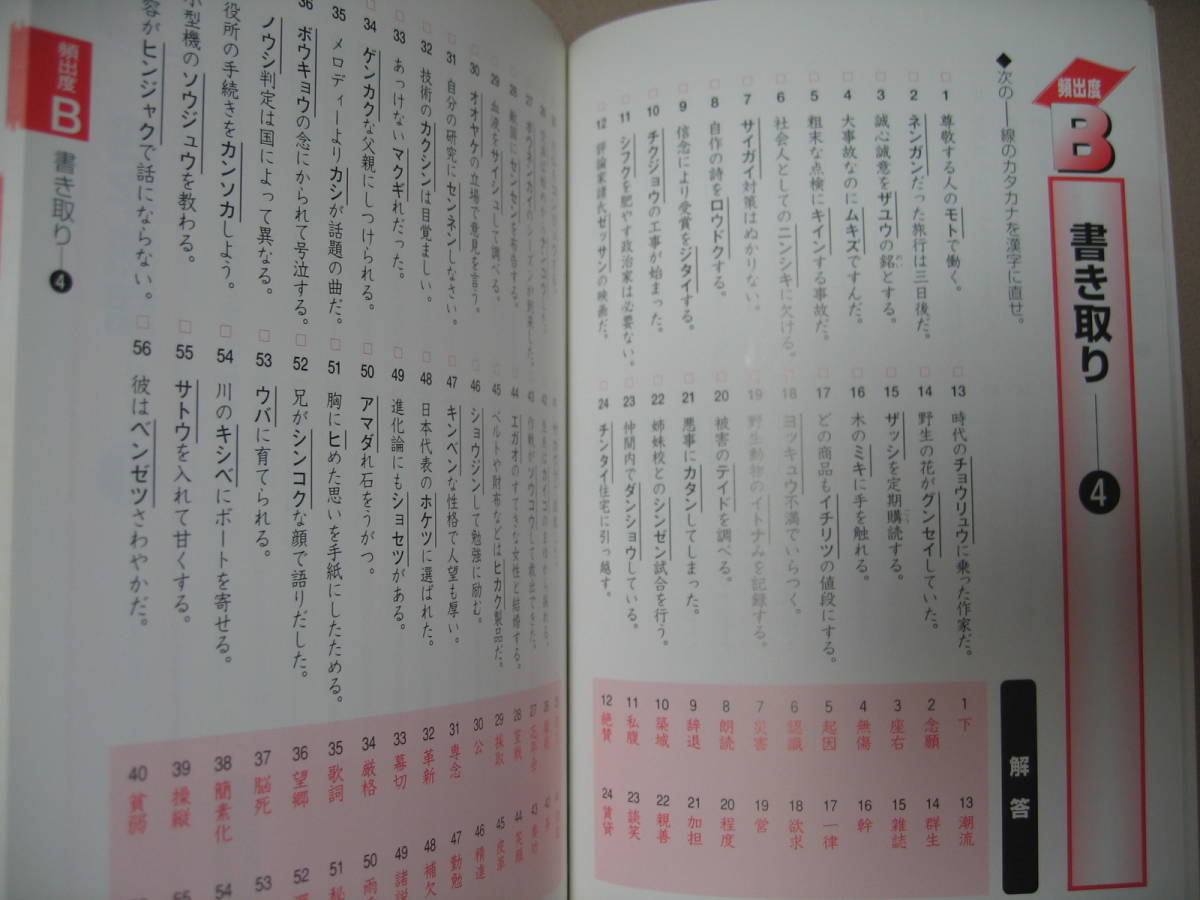 頻出度
B
書き取り
4
◆次の――線のカタカナを漢字に直せ。
1 尊敬する人のモトで働く。
2 ネンガンだった旅行は三日後だ。
3 誠心誠意をザユウの銘とする。
めい
4 大事故なのにムキズですんだ。
5 粗末な点検にキインする事故だ。
6 社会人としてのニンシキに欠ける。
7 サイガイ対策はぬかりない。
8 自作の詩をロウドクする。
9 信念により受賞をジタイする。
10 チクジョウの工事が始まった。
11 シフクを肥やす政治家は必要ない。
12 評論家諸氏ゼッサンの映画だ。
13 時代のチョウリュウに乗った作家だ。
14 野生の花がグンセイしていた。
15 ザッシを定期購読する。
こう
16 木のミキに手を触れる。
17 どの商品もイチリツの値段にする。
18 ヨッキュウ不満でいらつく。
19 野生動物のイトナみを記録する。
20 被害のテイドを調べる。
21 悪事にカタンしてしまった。
22 姉妹校とのシンゼン試合を行う。
23 仲間内でダンショウしている。
24 チンタイ住宅に引っ越す。
解答
1 下
2 念願
3 座右
4 無傷
5 起因
6 認識
7 災害
8 朗読
9 辞退
10 築城
11 私腹
12 絶賛
13 潮流
14 群生
15 雑誌
16 幹
17 一律
18 欲求
19 営
20 程度
21 加担
22 親善
23 談笑
24 賃貸
29 血液をサイシュして調べる。
30 オオヤケの立場で意見を言う。
31 自分の研究にセンネンしなさい。
32 技術のカクシンは目覚ましい。
33 あっけないマクギれだった。
34 ゲンカクな父親にしつけられる。
35 メロディーよりカシが話題の曲だ。
36 ボウキョウの念にかられて号泣する。
ノウシ判定は国によって異なる。
役所の手続きをカンソカしよう。
型機のソウジュウを教わる。
容がヒンジャクで話にならない。
44 エガオのすてきな女性と結婚する。
45 ベルトや財布などはヒカク製品だ。
46 ショウジンして勉強に励む。
47 キンベンな性格で人望も厚い。
48 日本代表のホケツに選ばれた。
49 進化論にもショセツがある。
50 アマダれ石をうがつ。
51 胸にヒめた思いを手紙にしたためる。
52 兄がシンコクな顔で語りだした。
53 ウバに育てられる。
54 川のキシベにボートを寄せる。
55 サトウを入れて甘くする。
56 彼はベンゼツさわやかだ。
28 宣戦
29 採取
30 公
31 専念
32 革新
33 幕切
34 厳格
35 歌詞
36 望郷
37 脳死
38 簡素化
39 操縦
40 貧弱
44 笑顔
45 皮革
46 精進
47 勤勉
48 補欠
49 諸説
50 雨
51 秘
52
53
54
55
頻出度
B
書き取り―4